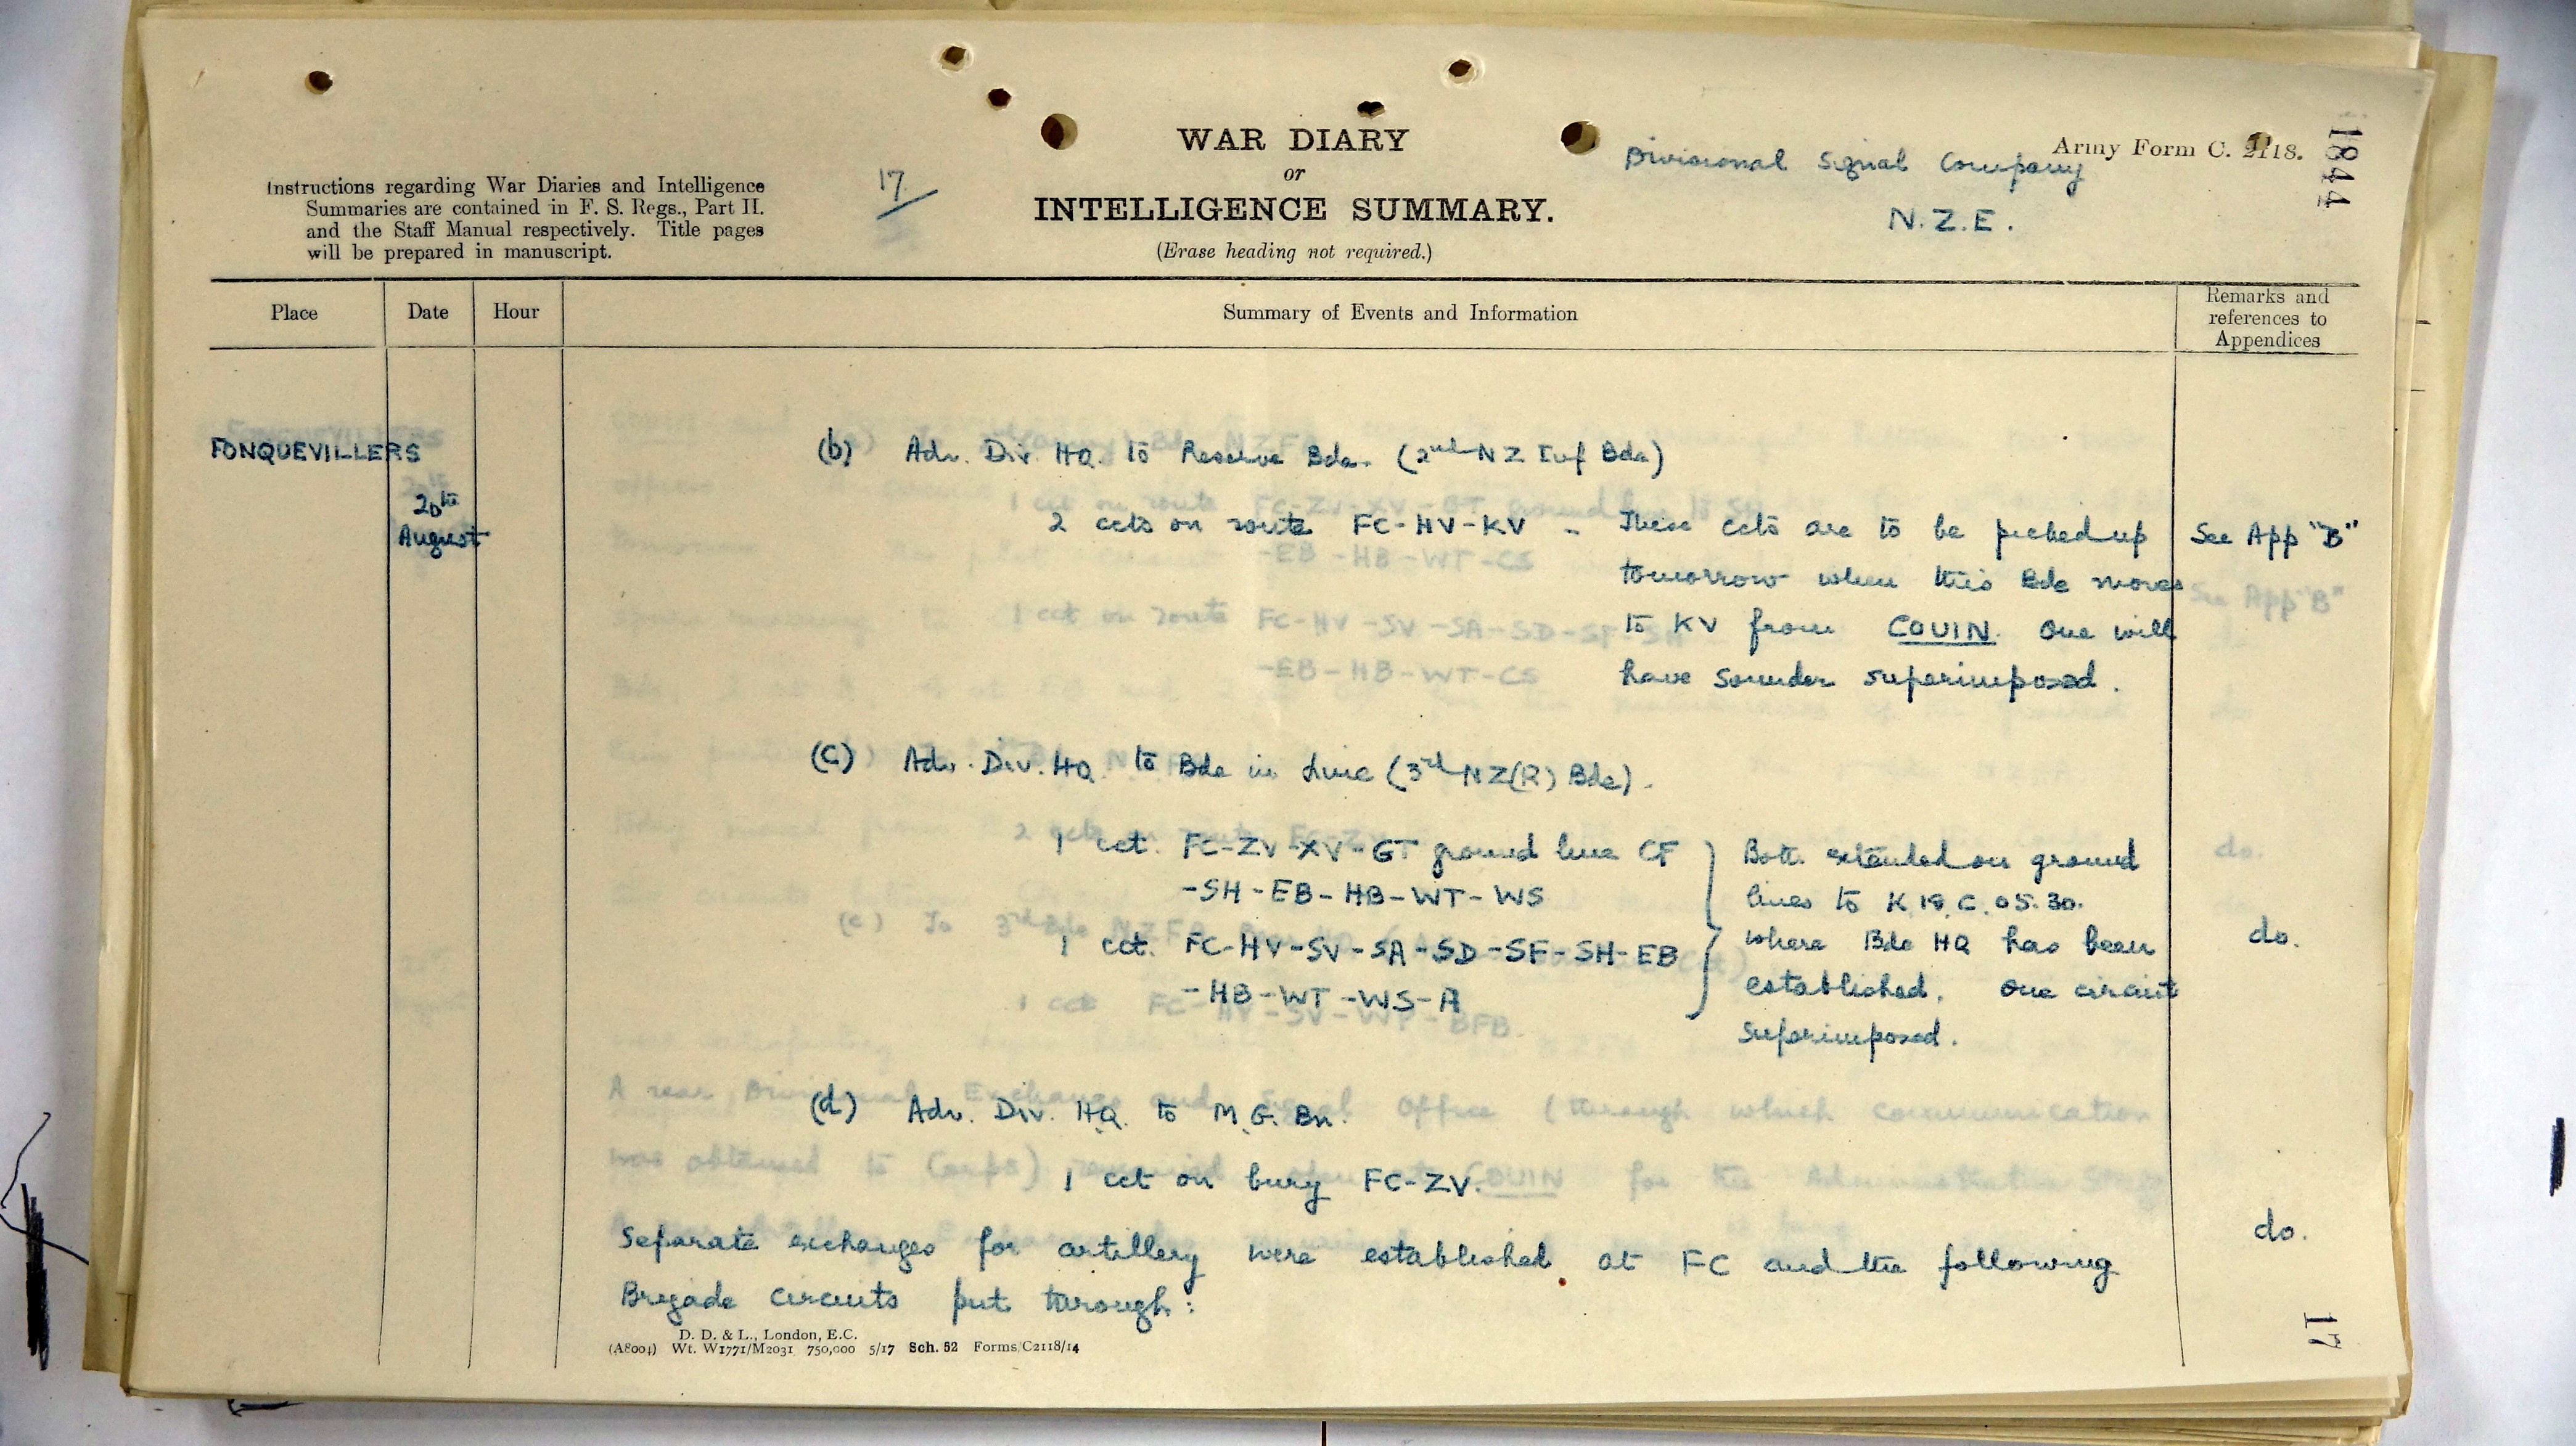 Army Form C. 2118.
1844
WAR DIARY
or
INTELLIGENCE SUMMARY.
(Erase heading not required.)
Instructions regarding War Diaries and Intelligence
Summaries are contained in F. S. Regs., Part II.
and the Staff Manual respectively. Title pages
will be prepared in manuscript.
17
Divisional Signal Company
N.Z.E.
Place
Date
Hour
Summary of Events and Information
Remarks and
references to
Appendices
FONQUEVILLERS
20th
August
(b) Adv. Div. HQ. to Reserve Bde. (2nd NZ Inf Bde)
2 ccts on route FC-HV-KV - These ccts are to be picked up
tomorrow when this Bde moves
to KV from COUIN. One will
have sounder superimposed.
See App "B"
(c) Adv. Div. HQ. to Bde in Line (3rd NZ(R) Bde).
1 cct. FC-ZV-XV-GT ground line CF
-SH-EB-HB-WT-WS
1 cct. FC-HV-SV-SA-SD-SF-SH-EB
-HB-WT-WS-A
Both extended on ground
lines to K.19.C.05.30.
where Bde HQ has been
established. One circuit
superimposed.
do.
(d) Adv. Div. HQ. to M.G. Bn.
1 cct on bury FC-ZV.
do.
Separate exchanges for artillery were established at FC and the following
Brigade circuits put through:
D. D. & L., London, E.C.
(A8004) Wt. W1771/M2031 750,000 5/17 Sch. 52 Forms/C2118/14
17